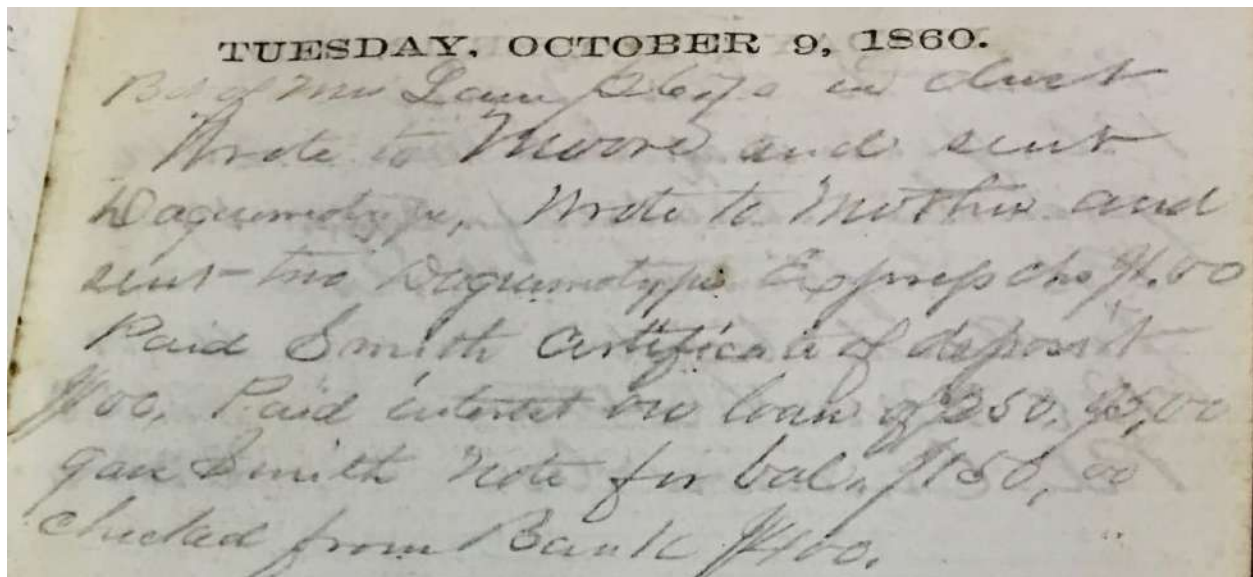 TUESDAY, OCTOBER 9, 1860.
of Mr in dust
Wrote to Moore and sent
Daguerreotype, Wrote to Mother and
sent two Daguerreotype Express chs $1.00
Paid Smith Certificate of deposit
$100. Paid interest on loan of 250. $5,00
gave Smith Note for bal. $150,00
checked from Bank $400.